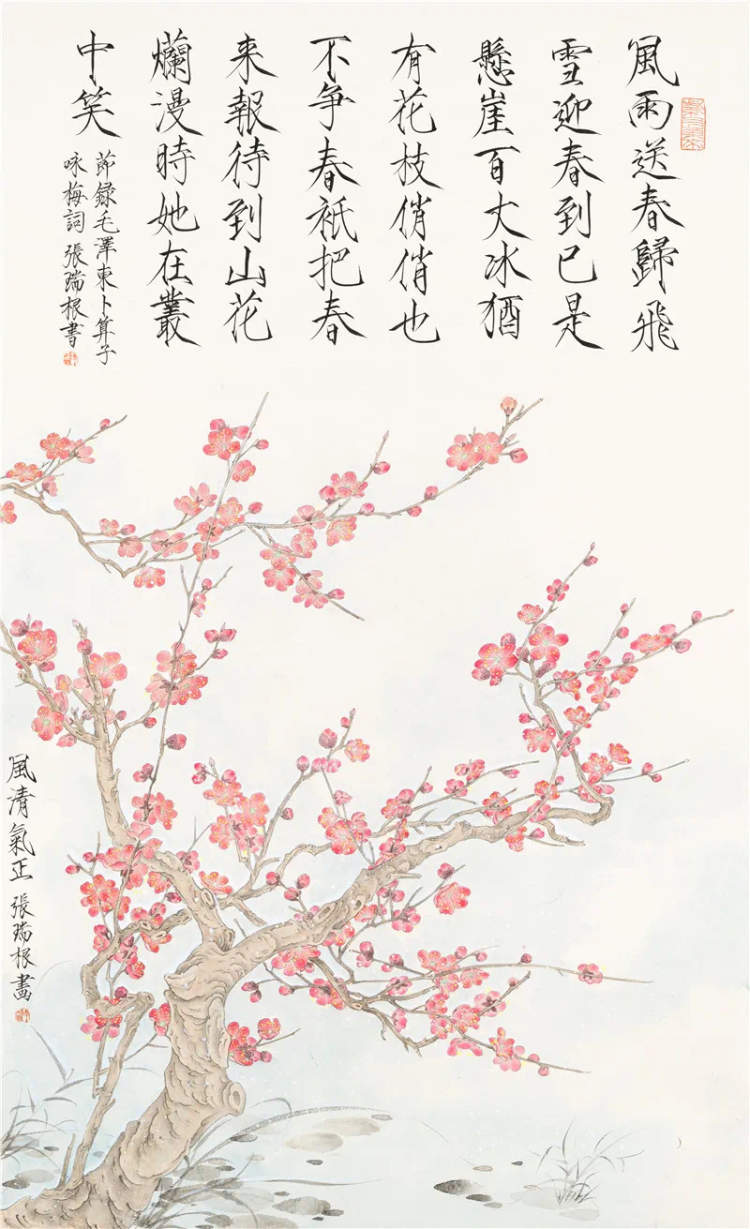 風雨送春歸飛
雪迎春到已是
懸崖百丈冰猶
有花枝俏俏也
不争春衹把春
来報待到山花
爛漫時她在叢
中笑
節録毛澤東卜算子
咏梅詞張瑞根書
風清氣正張瑞根畫